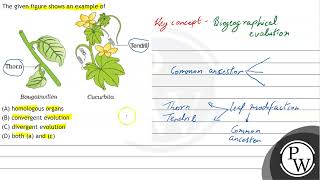 The given figure shows an example of
Thorn
Tendril
Bougainvillea
Cucurbita
(A) homologous organs
(B) convergent evolution
(C) divergent evolution
(D) both (a) and (c)
Key concept - Biogeographical
evolution
Common ancestor
Thorn
Tendril
leaf modification
Common
ancestor
PW